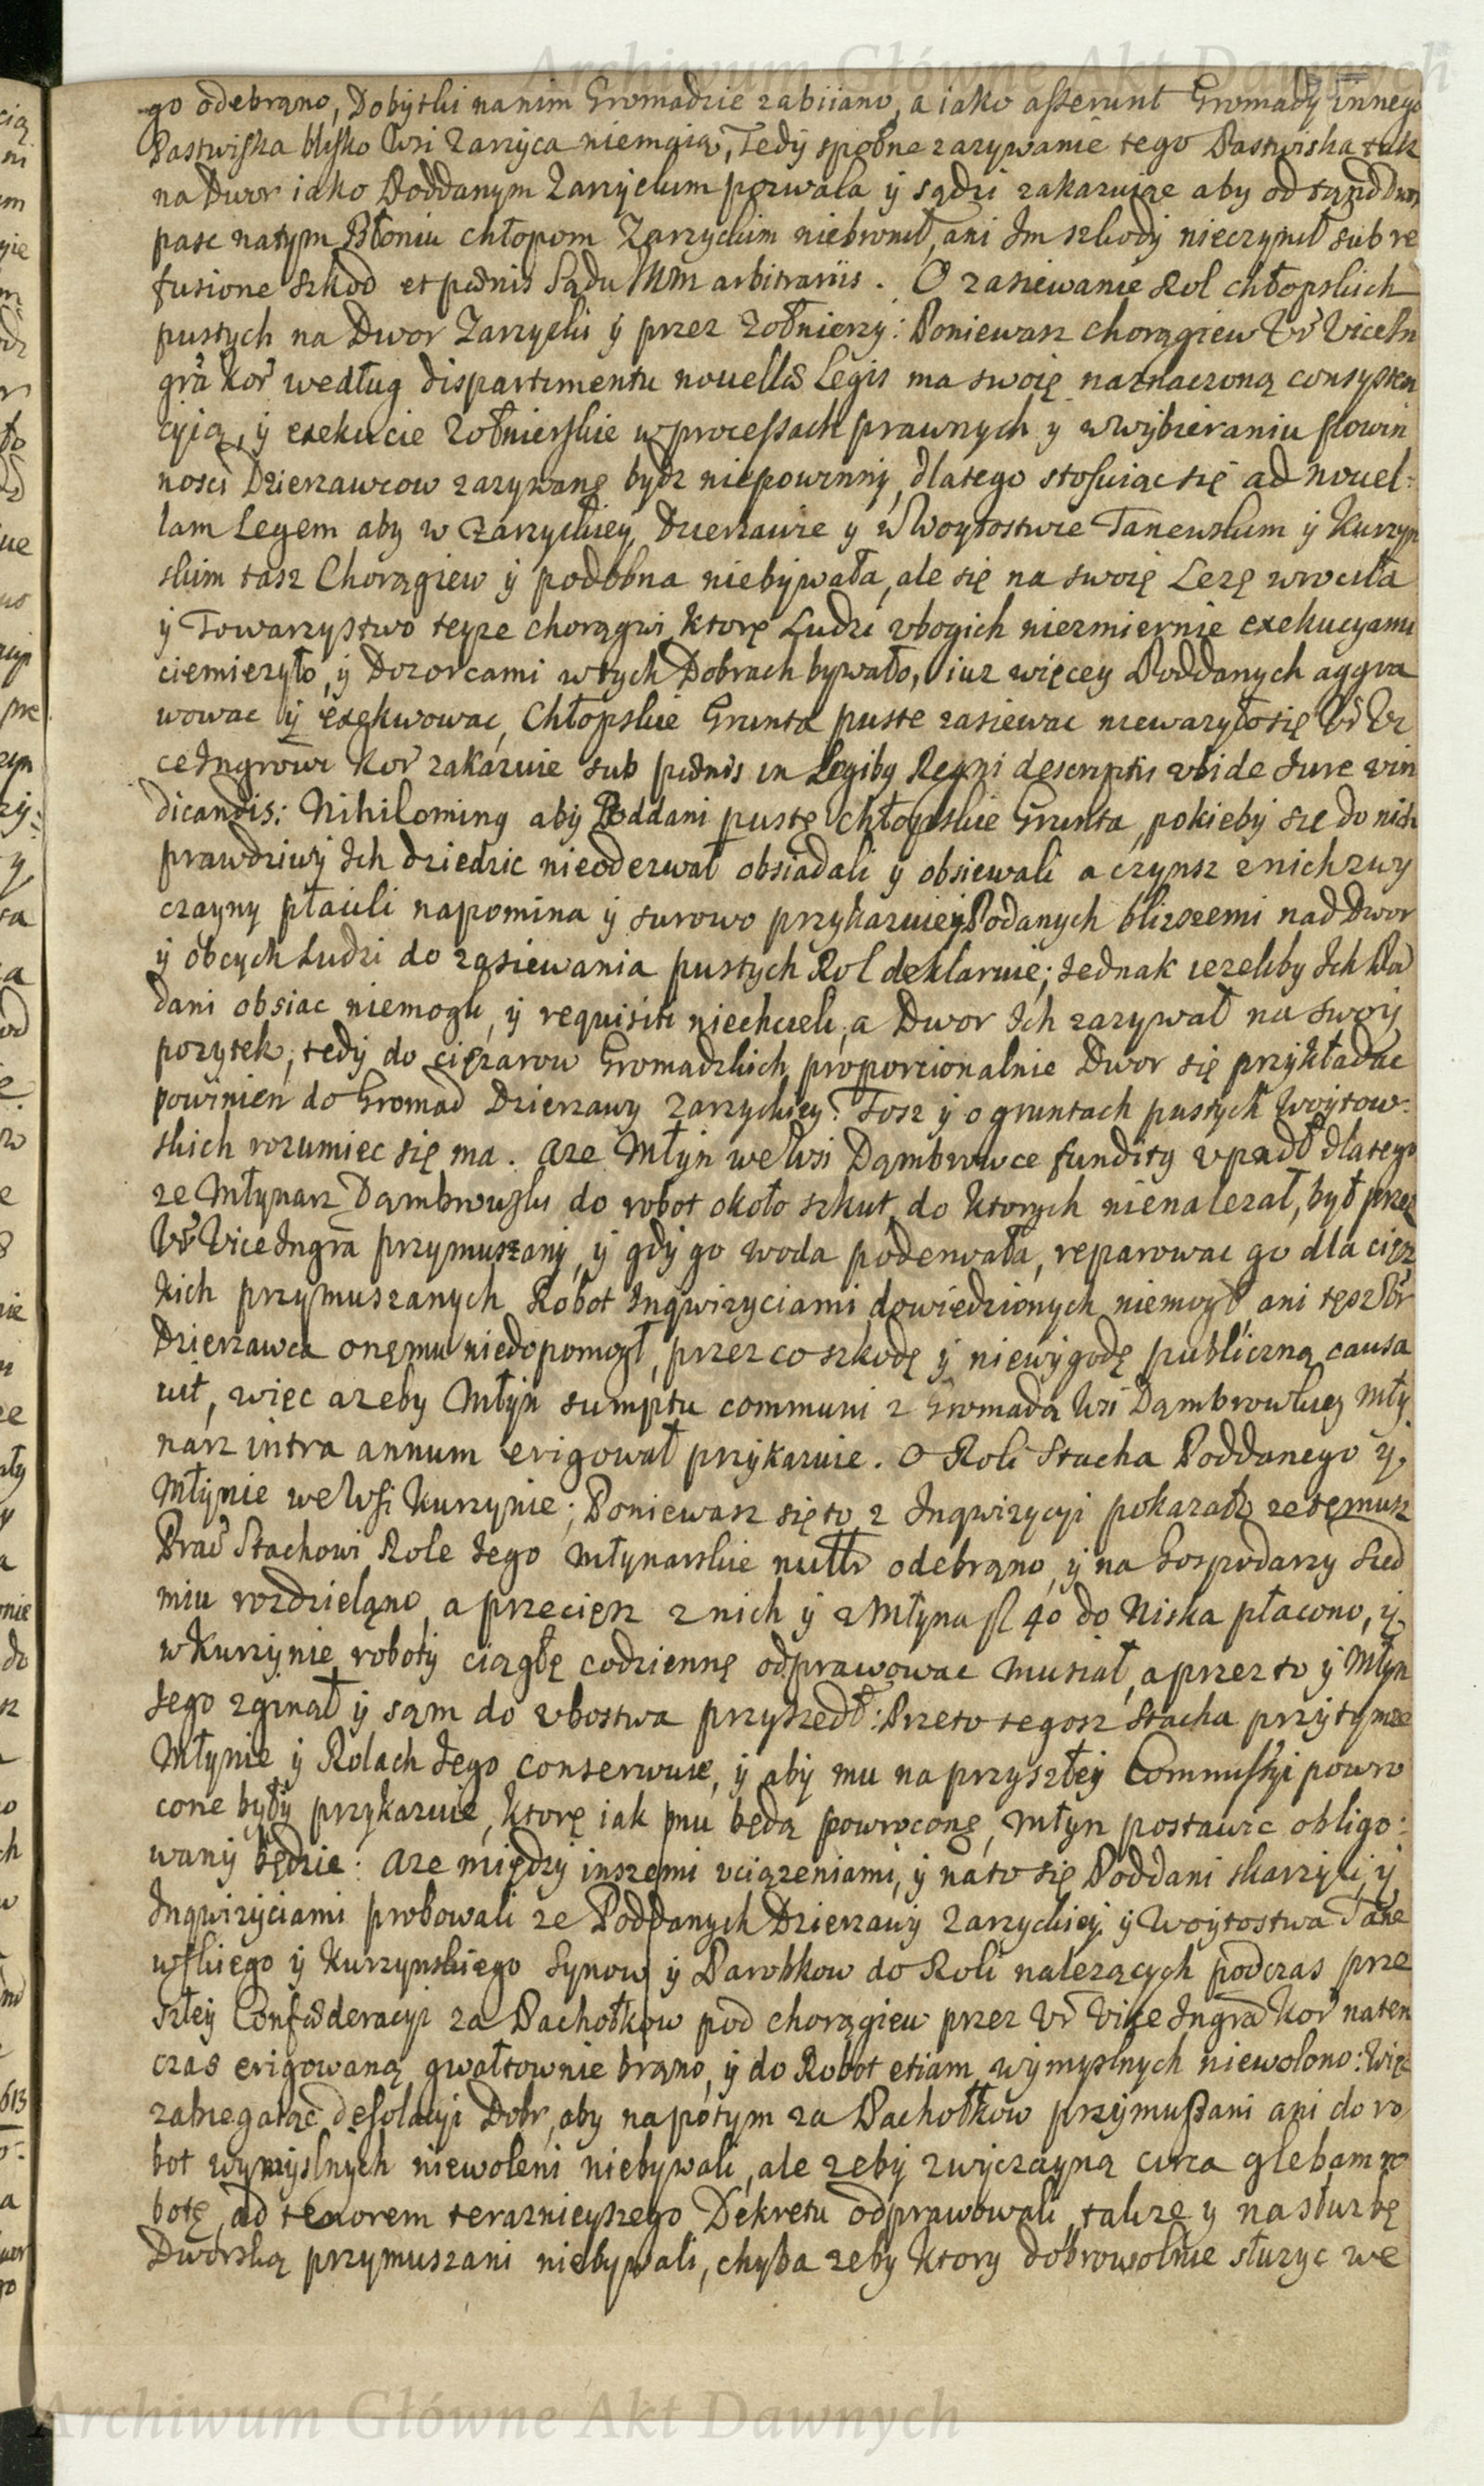 Archiwum Główne Akt Dawnych
go odebrąno, Dobytki na nim Gromadzie zabiiano, a iako asserunt Gromady innego
Pastwiska blisko Wsi Zarzyca niemaią, Tedy społne zazywanie tego Pastwiska tak
na Dwor iako Poddanym Zarzyckim pozwala y sądzi zakazuiąc aby odtąnd Dwor
pasc natym Błoniu chłopom Zarzyckim niebronił, ani Im szkody nieczynił sub re
fusione szkod et pœnis Sądu arbitrariis. O zasiewanie Rol chłopskich
pustych na Dwor Zarzycki y przez Zołnierzy: Poniewasz chorągiew Ur Vicein
gra Kor według dispartimentu novellæ Legis ma swoię naznaczoną consysten
cyią, y exekucie Zołnierskie w processach prawnych y w wybieraniu powin
nosci Dzierzawcow zazywane bydz niepowinny, dlatego stosuiąc się ad novel:
lam Legem aby w Zarzyckiey Dzierzawie y w Woytostwie Tanewskim y Kurzyn
skim tasz Chorągiew y podobna niebywała, ale się na swoię Lezę wrociła
y Towarzystwo teyze chorągwi, ktorę Ludzi vbogich niezmiernie exekucyami
ciemięzyło, y Dozorcami w tych Dobrach bywało, iuz więcey Poddanych aggra
wowac y exekwowac, Chłopskie Grunta puste zasiewac niewazyło się Ur Vi
ceIngrowi Kor zakazuie sub pœnis in Legibg Regni descriptis vbi de Iure vin
dicandis: Nihiloming aby Poddani pustę chłopskie Grunta, pokieby się do nich
prawdziwy Ich dziedzic nieoderwał obsiadali y obsiewali a czynsz z nich zwy
czayny płacili napomina y surowo przykazuie, y Podanych blizszemi nad Dwor
y obcych Ludzi do zasiewania pustych Rol deklaruie; Iednak iezeliby Ich Pod
dani obsiac niemogli, y requisiti niechcieli, a Dwor Ich zazywał na swoy
pozytek, tedy do cięzarow Gromadzkich proporcionalnie Dwor się przykładac
powinien do Gromad Dzierzawy Zarzyckiey. Tosz y o gruntach pustych Woytow:
skich rozumiec się ma. Aze Młyn we Wsi Dąmbrowce funditg vpadł dlatego
ze Młynarz Dąmbrowski do robot około szkut, do ktorych nienalezał, był przez
Ur ViceIngra przymuszany, y gdy go woda poderwała, reparowac go dla cięz
kich przymuszanych Robot Inqwizyciami dowiedzionych niemogł, ani tęsz Ur
Dzierzawca onęmu niedopomogł, przez co szkodę y niewygodę publiczną causa
wił, więc azeby Młyn sumptu communi z Gromadą Wsi Dąmbrowkiey Mły
narz intra annum erigował przykazuie. O Roli Stacha Poddanego y
Młynie we Wsi Kurzynie; Poniewasz się to z Inqwizycyi pokazało ze temusz
Prac Stachowi Role Iego Młynarskie odebrąno, y na Gospodarzy Sied
miu rozdzieląno, a przeciesz z nich y z Młyna fl 40 do Niska płacono, y
w Kurzynie roboty ciągłę codziennę odprawowac musiał, a przez to y Młyn
Iego zginął y sąm do vbostwa przyszedł: Przeto tegosz Stacha przy tymze
Młynie y Rolach Iego conserwuie, y aby mu na przyszłey Commissyi powro
cone były przykazuie, ktorę iak mu będą powroconę, Młyn postawic obligo:
wany będzie: Aze między inszemi vciązeniami, y na to się Poddani skarzyli, y
Inqwizyciami probowali ze Poddanych Dzierzawy Zarzyckiey y Woytostwa Tane
wskiego y Kurzynskiego Synow y Parobkow do Roli nalezących podczas prze
szłey Confœderacyi za Pachołkow pod chorągiew przez Ur ViceIngra Kor naten
czas erigowaną gwałtownie brąno, y do Robot etiam wymyslnych niewolono: Więc
zabiegaiąc desolacyi Dobr, aby napotym za Pachołkow przymuszani ani do ro
bot wymyslnych niewoleni niebywali, ale zeby zwyczayną circa glebam ro
botę, ad tenorem teraznieyszego Dekretu odprawowali, takze y na słuzbę
Dworską przymuszani niebywali, chyba zeby ktory dobrowolnie słuzyc we
Archiwum Główne Akt Dawnych